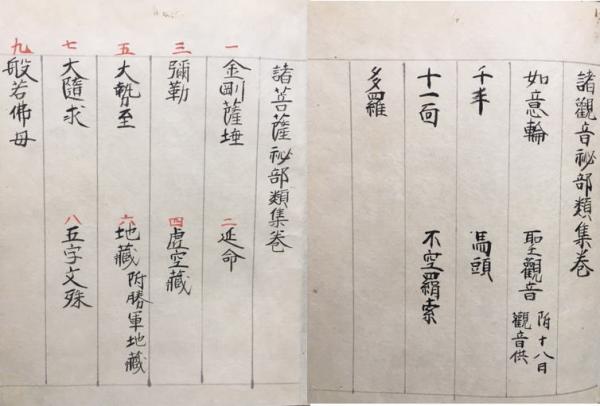 諸觀音祕部類集卷
如意輪 聖觀音 附十八日
觀音供
千手 馬頭
十一面 不空羂索
多羅
諸菩薩祕部類集卷
一 金剛薩埵 二 延命
三 彌勒 四 虛空藏
五 大勢至 六 地藏 附勝軍地藏
七 大隨求 八 五字文殊
九 般若佛母